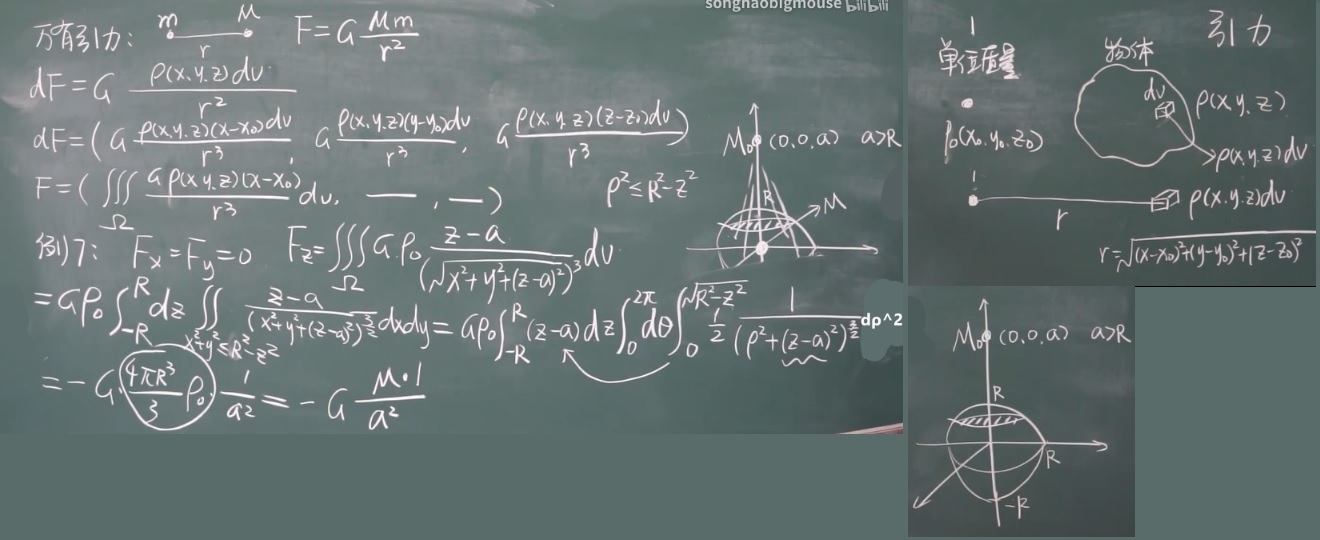 songhaobigmouse bilibili
万有引力: m M r F=G Mm/r²
dF=G ρ(x,y,z)dv/r²
dF=(G ρ(x,y,z)(x-x₀)dv/r³, G ρ(x,y,z)(y-y₀)dv/r³, G ρ(x,y,z)(z-z₀)dv/r³)
F=(∭_Ω Gρ(x,y,z)(x-x₀)/r³ dv, —, —) ρ²≤R²-z²
例7: Fx=Fy=0 Fz=∭_Ω G·ρ₀ (z-a)/(√(x²+y²+(z-a)²))³ dv
=Gρ₀∫_{-R}^{R}dz∬_{x²+y²≤R²-z²} (z-a)/(x²+y²+(z-a)²)^{3/2} dxdy=Gρ₀∫_{-R}^{R}(z-a)dz∫_0^{2π}dθ∫_0^{√(R²-z²)} 1/2 1/(ρ²+(z-a)²)^{3/2} dρ^2
=-G·4πR³/3 ρ₀·1/a²=-G M·1/a²
M₀ (0,0,a) a>R
R
M
1 引力
单位质量 物体
dv ρ(x,y,z)
P₀(x₀,y₀,z₀) ρ(x,y,z)dv
1 r ρ(x,y,z)dv
r=√((x-x₀)²+(y-y₀)²+(z-z₀)²)
M₀ (0,0,a) a>R
R
R
-R